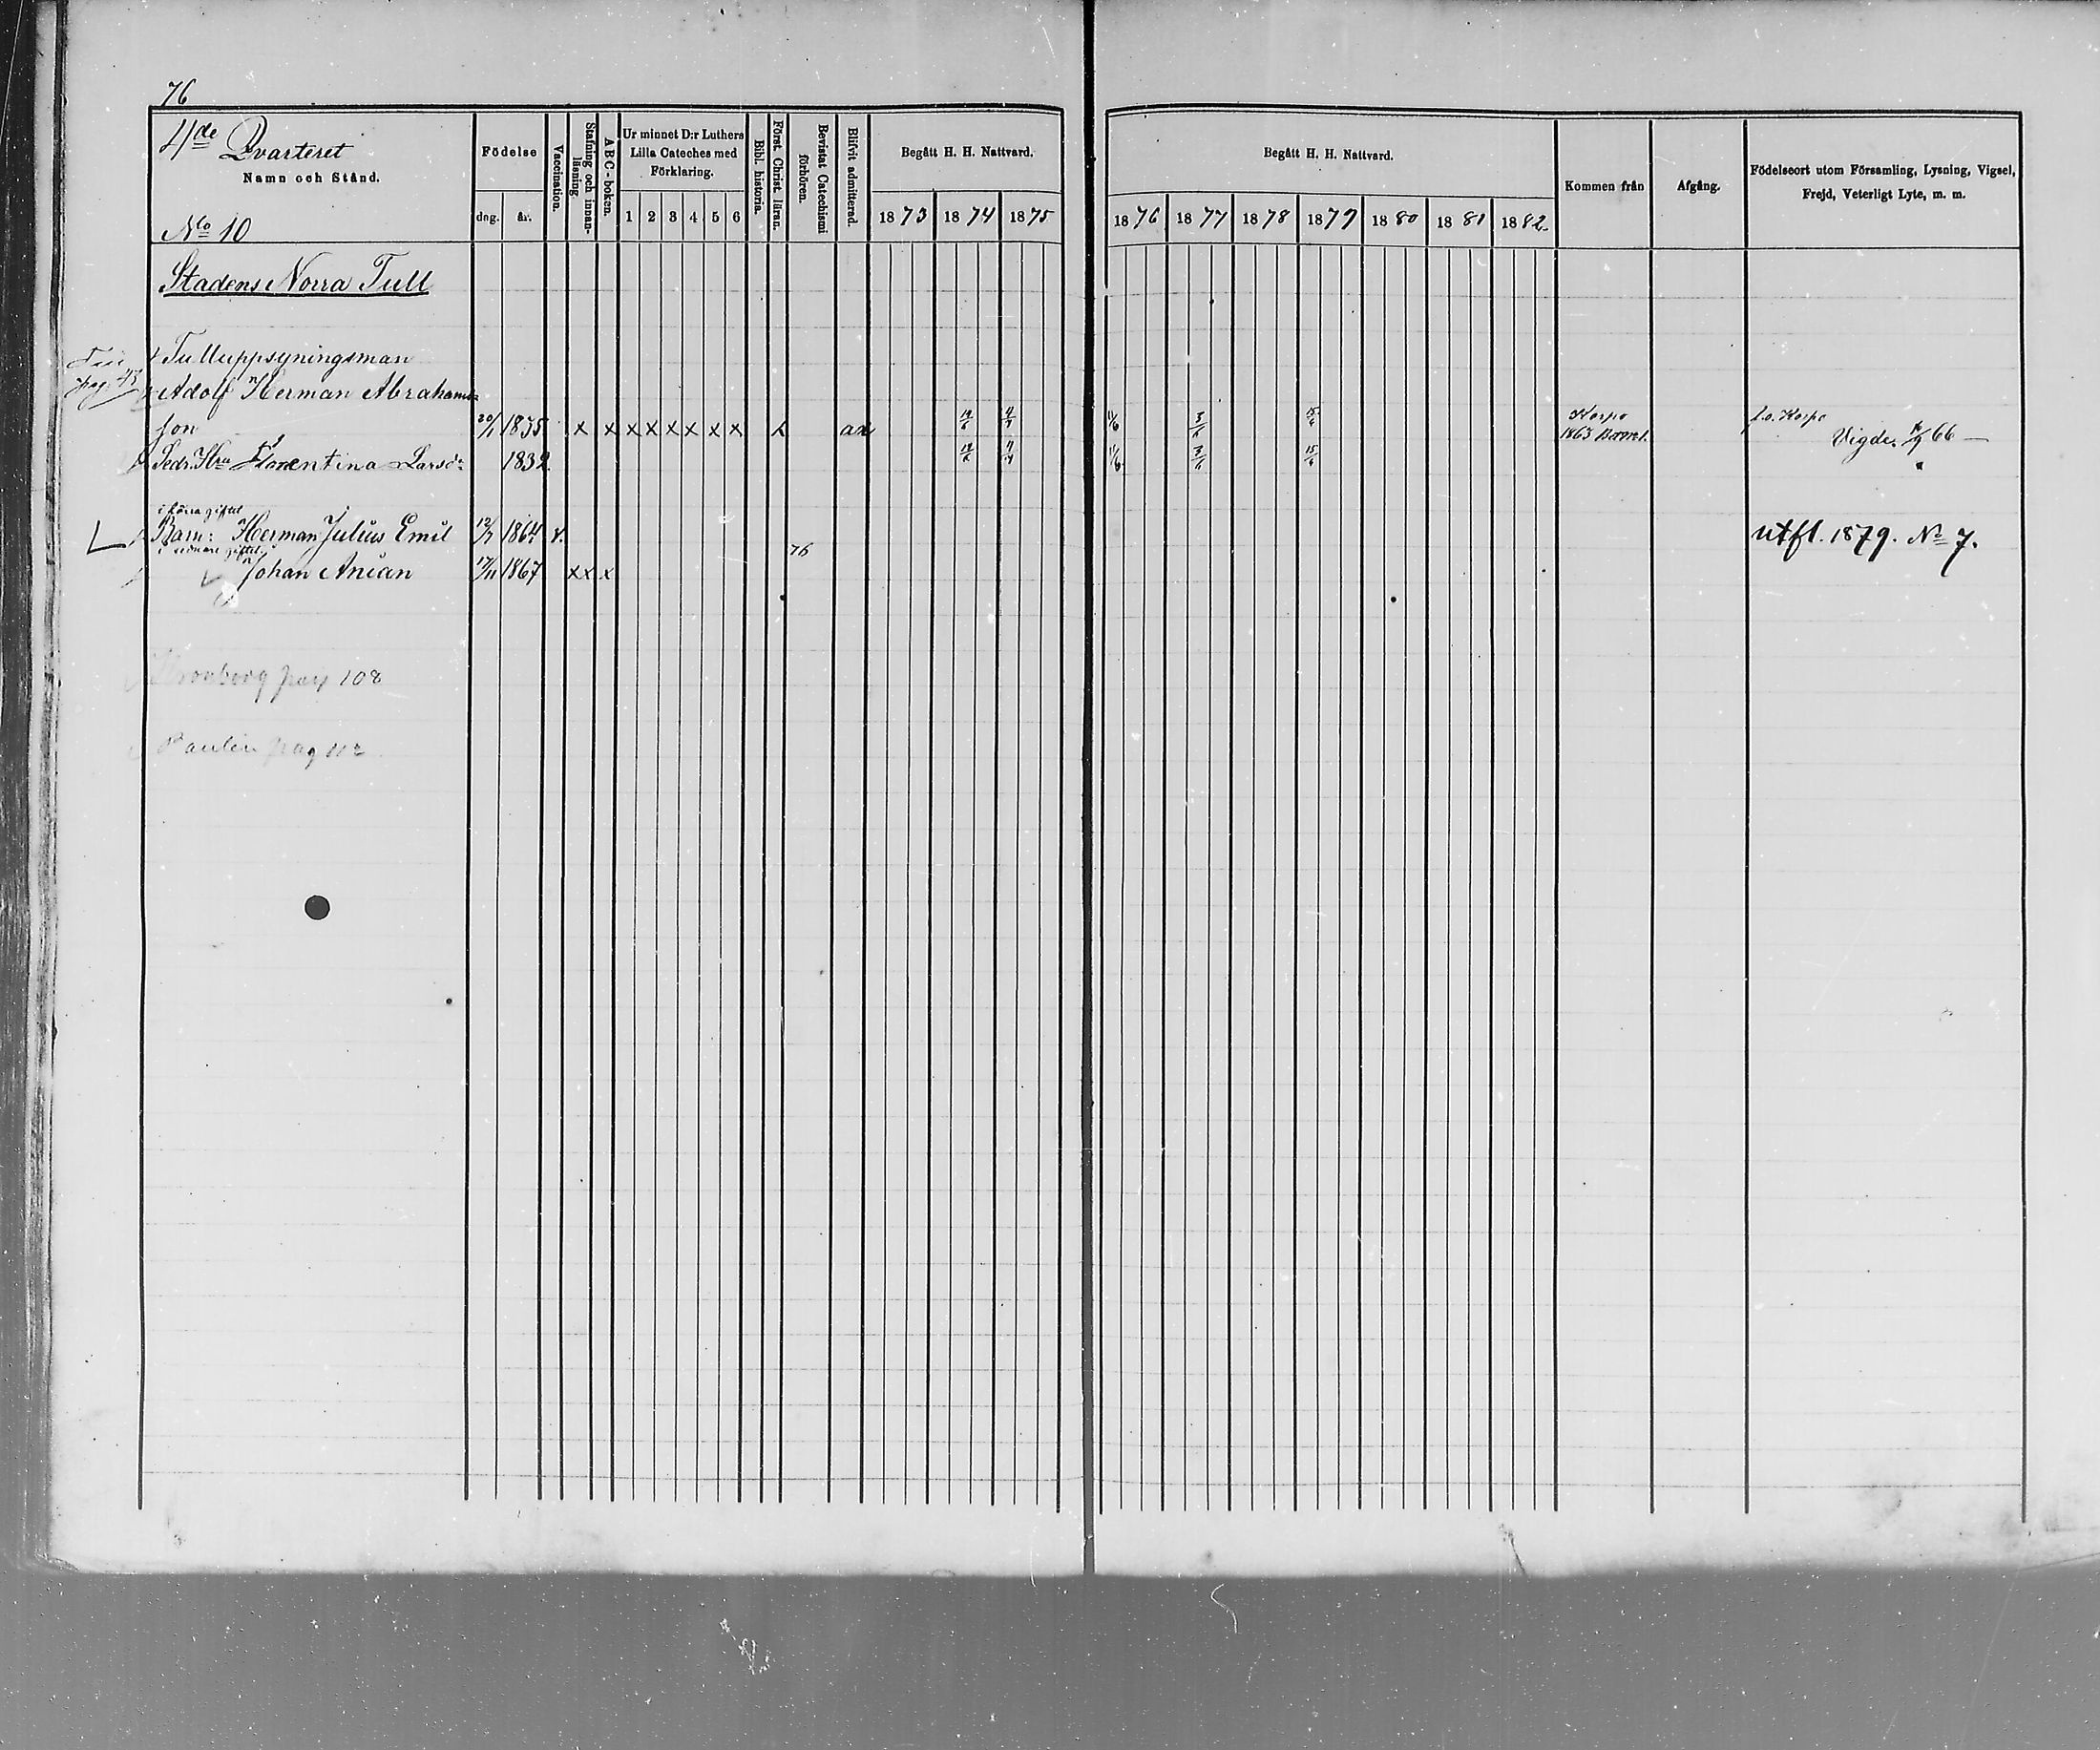 76
4de Qvarteret
Namn och Stånd.
No 10
Födelse
dng.
år.
Vaccination.
Stafning och innan-
läsning.
A B C - boken.
Ur minnet D:r Luthers
Lilla Cateches med
Förklaring.
1 2 3 4 5 6
Bibl. historia.
Först. Christ. läran.
Bevistat Catechismi
förhören.
Blifvit admitterad.
Begått H. H. Nattvard.
1873 1874 1875
Begått H. H. Nattvard.
1876 1877 1878 1879 1880 1881 1882
Kommen från
Afgång.
Födelseort utom Församling, Lysning, Vigsel,
Frejd, Veterligt Lyte, m. m.
Stadens Norra Tull
Tulluppsyningsman
pag 43
Adolf Herman Abrahams-
son 20/1 1835 x x x x x x x x x an 14/6 4/7 11/6 3/6 15/6 Korpo f.o. Korpo
1863 Vigde 66 —
Sedn. Hu Florentina Larsdr 1832 14/6 4/7 11/6 3/6 15/6
i förra giftet
Barn: Herman Julius Emil 12/7 1864 v. utfl. 1879. No 7.
i senare giftet 76
Johan Anian 17/11 1867 x x x
pag 108
Paulin pag 112